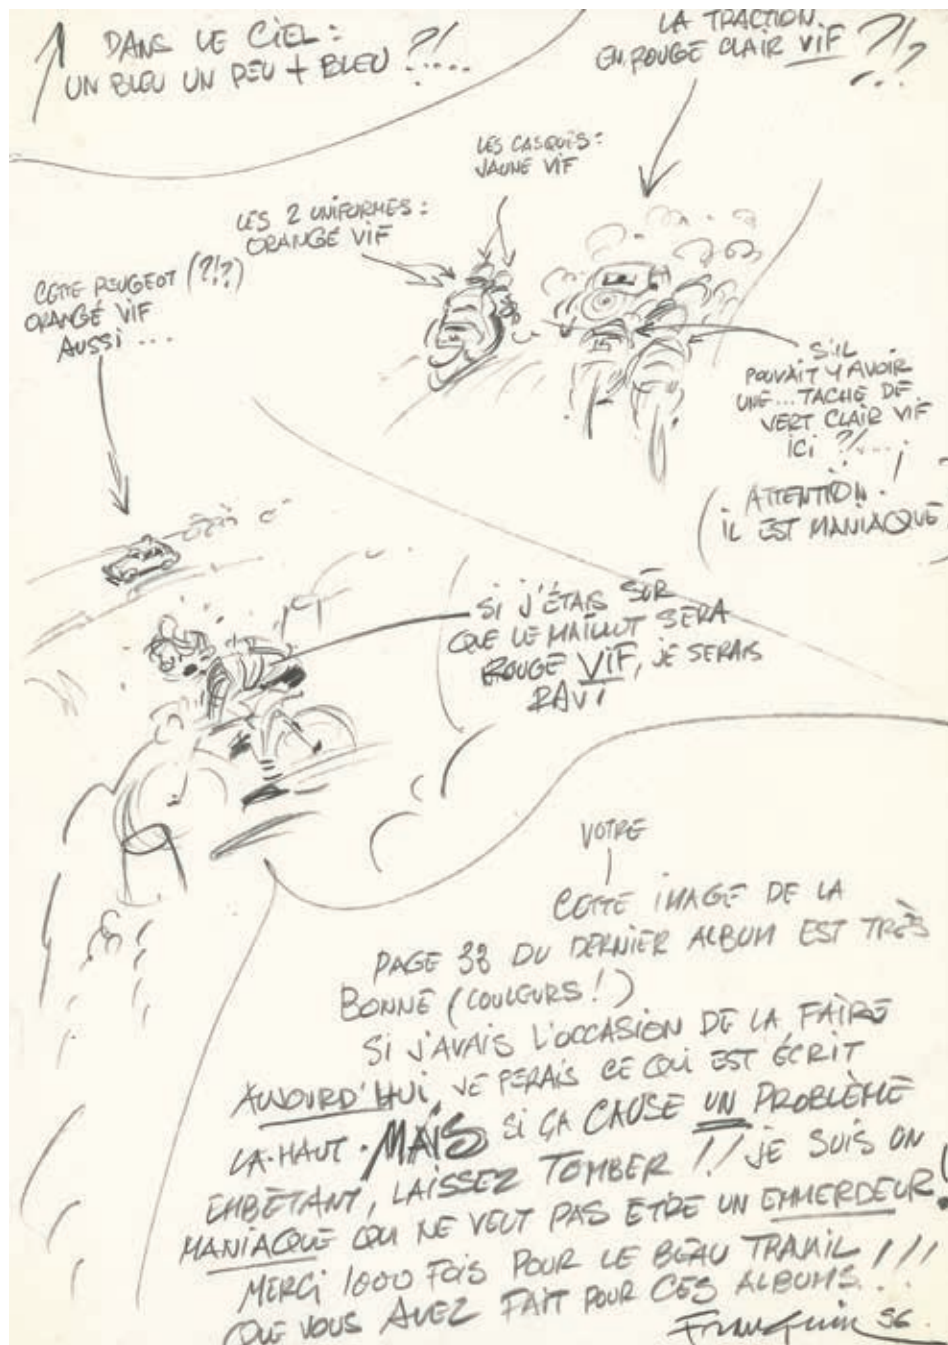 DANS LE CIEL :
UN BLEU UN PEU + BLEU ?!....
LA TRACTION.
EN ROUGE CLAIR VIF ?!?
LES CASQUES :
JAUNE VIF
LES 2 UNIFORMES :
ORANGÉ VIF
CETTE PEUGEOT (?!?)
ORANGÉ VIF
AUSSI ...
S'IL
POUVAIT Y AVOIR
UNE... TACHE DE
VERT CLAIR VIF
ICI ?!....
(ATTENTION !
IL EST MANIAQUE
SI J'ÉTAIS SÛR
QUE LE MAILLOT SERA
ROUGE VIF, JE SERAIS
RAVI
VOTRE
CETTE IMAGE DE LA
PAGE 33 DU DERNIER ALBUM EST TRÈS
BONNE (COULEURS !)
SI J'AVAIS L'OCCASION DE LA FAIRE
AUJOURD'HUI, JE FERAIS CE QUI EST ÉCRIT
LA-HAUT. MAIS SI ÇA CAUSE UN PROBLÈME
EMBÊTANT, LAISSEZ TOMBER !! JE SUIS UN
MANIAQUE QUI NE VEUT PAS ETRE UN EMMERDEUR !
MERCI 1000 FOIS POUR LE BEAU TRAVAIL
QUE VOUS AVEZ FAIT POUR CES ALBUMS !!!
Franquin 96.